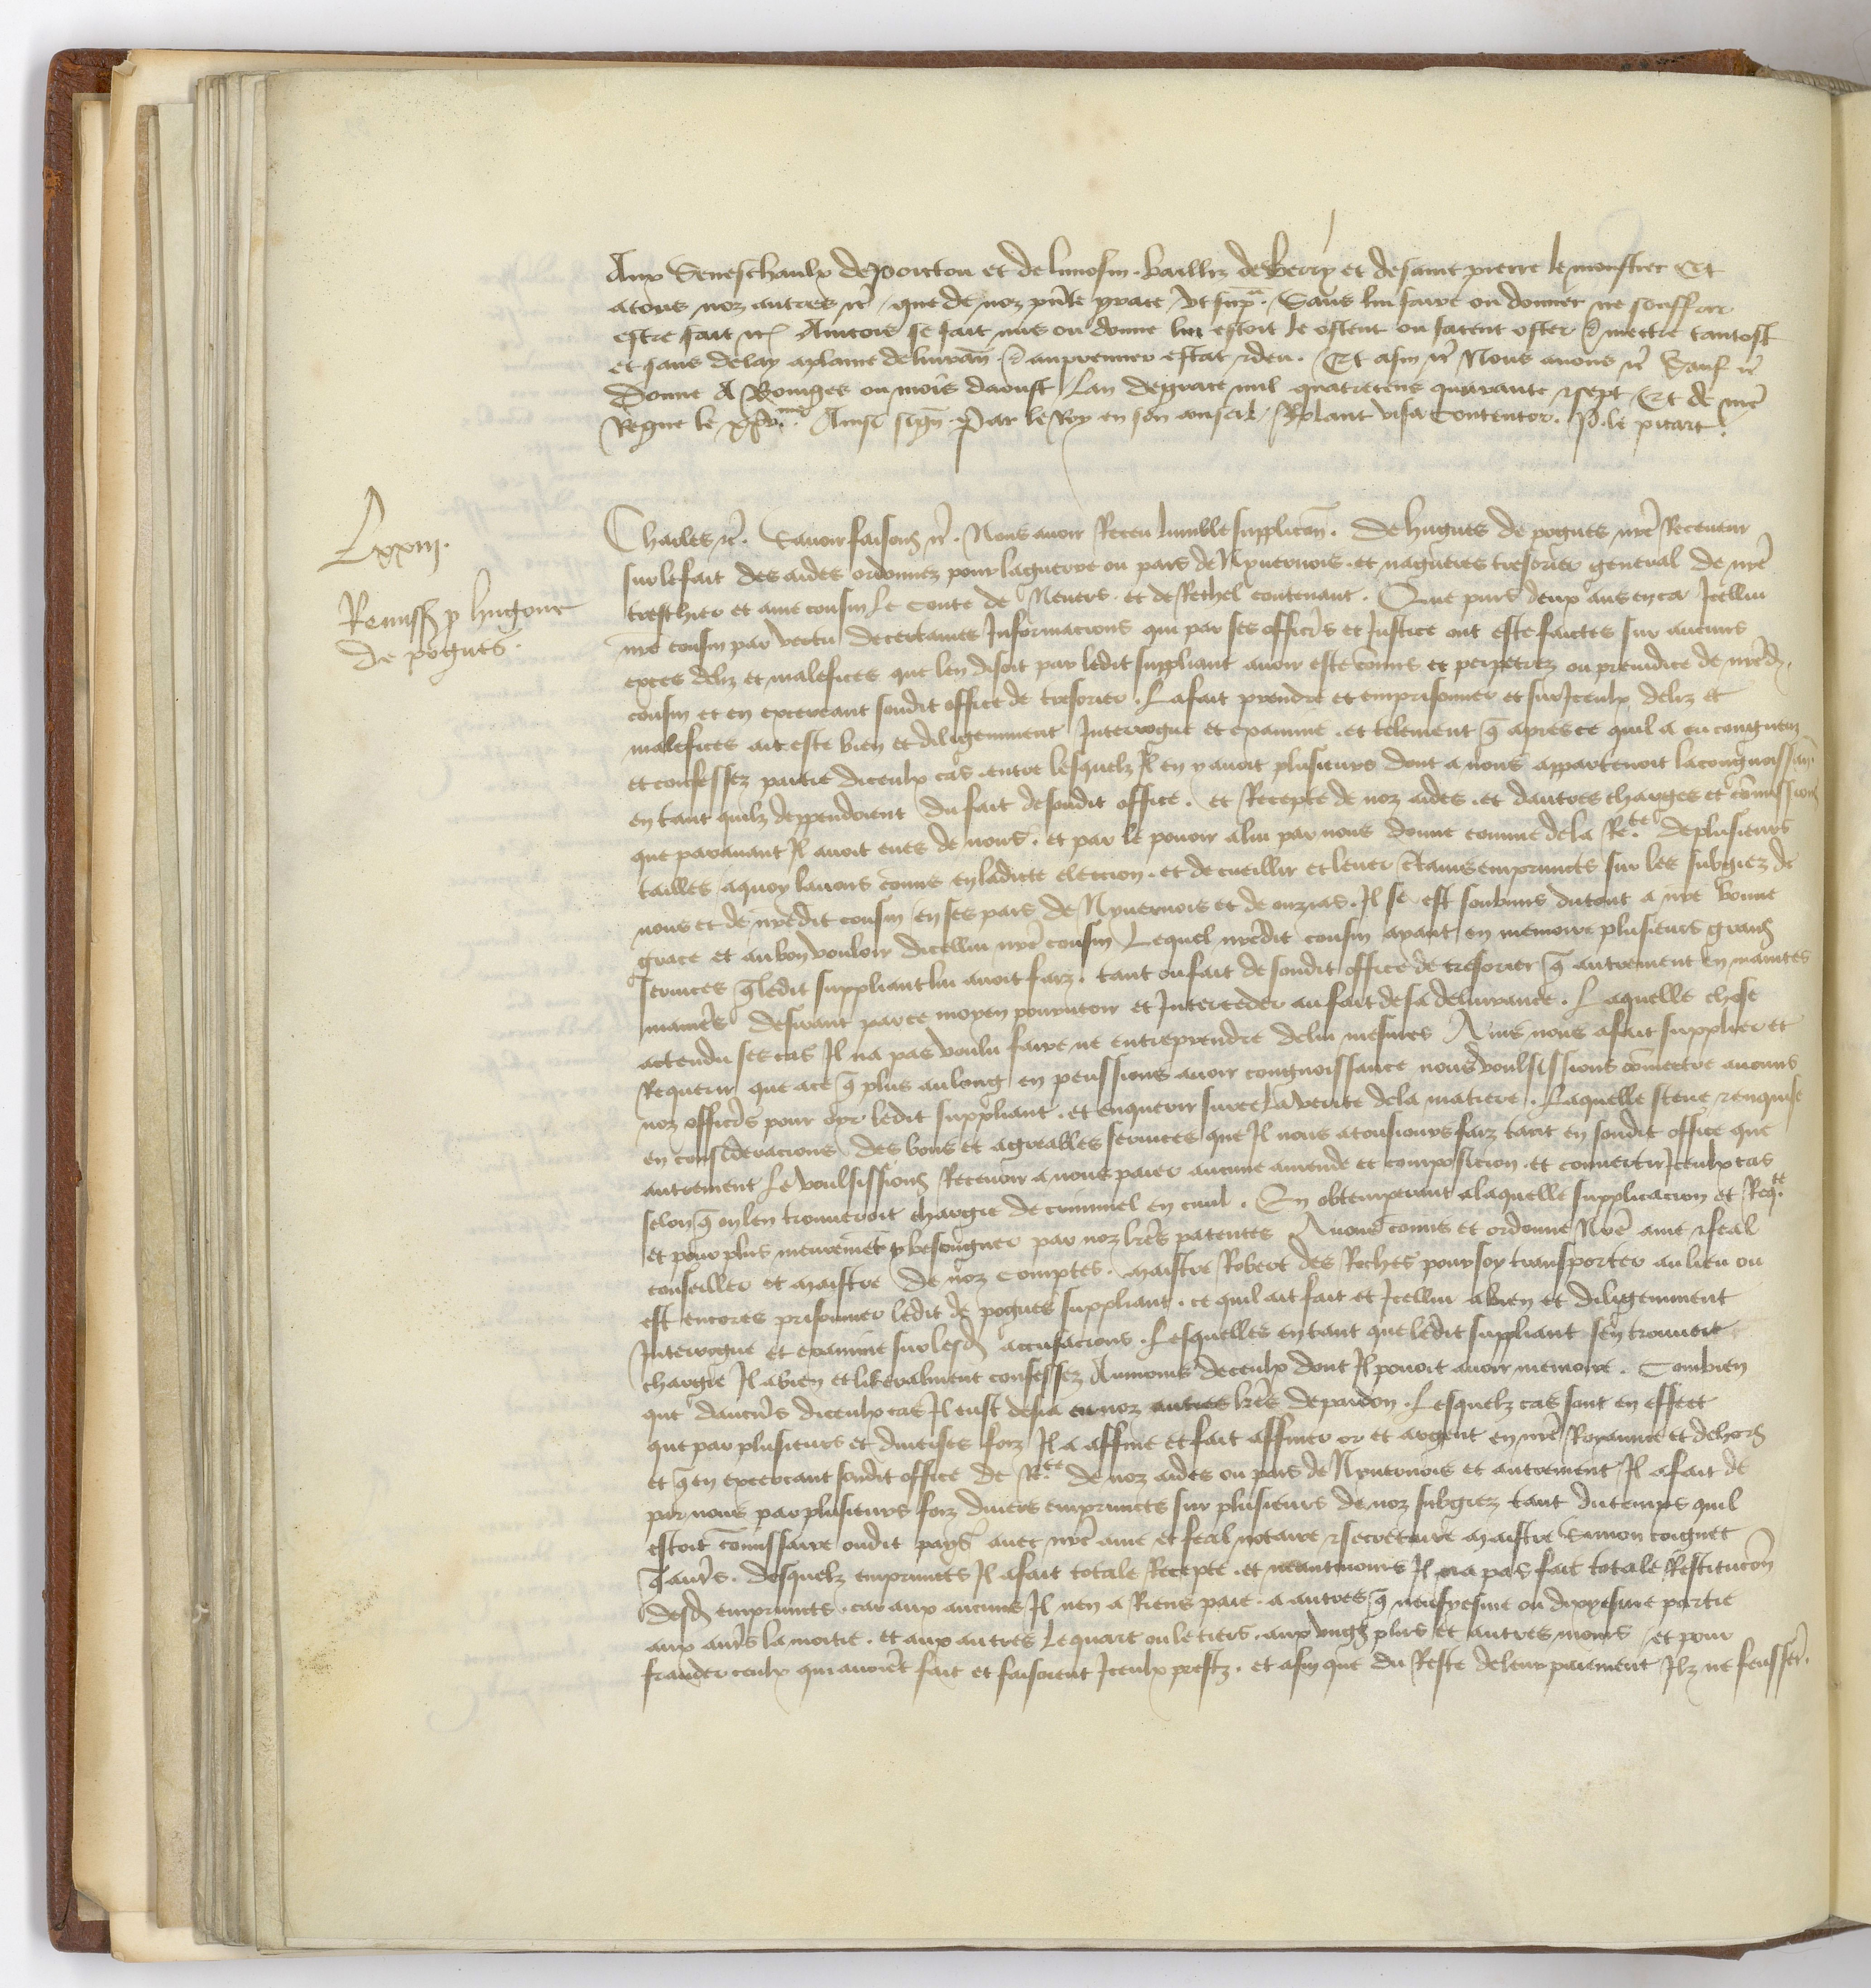 Aux Seneschaulx de poictou et de limosin . bailliz de berry et de saint pierre le monstier Et
a tous noz autres etc̃ . que de noz p̃nte grace . Ut sup̃ª . Sans lui faire ou donner ne souffrir
estre fait etc̃ Aincois se fait mis ou donne lui estoit le ostent ou facent oster & mettre tantost
et sans delay a plaine deliurañ & au premier estat & deu . Et afin etc̃ Nous auons etc̃ Sauf etc̃
Donne A Bourges ou mois daoust Lan de grace mil quatrecens quarante & sept Et de nr̃e
Regne le xxv.me Ainsi sign̄ . Par le Roy en son conseil . Rolant visa Contentor . P . le picart .
Lxxiij .
Remissio p hugone
de pogues .
Charles etc̃ . Sauoir faisons etc̃ . Nous auoir Receu lumble supplicõn . De hugues de pogues nr̃e Receueur
sur le fait des aides ordonnez pour la guerre ou pais de Nyuernois . et nagueres tresorier general de nr̃e
treschier et ame cousin le Conte de Neuers . et de Rethel contenant . Que puis deux ans enca Icellui
nr̃e cousin par vertu de certaines Informacions qui par ses officiers et Justice ont este faictes sur aucuns
exces deliz et malefices que len disoit par ledit suppliant auoir este cõmis et perpetrez ou preiudice de nr̃ed.
cousin et en excercant sondit office de tresorier . La fait prendre et emprisonner et sur Iceulx deliz et
malefices ait este bien et diligemment Interrogue et examine . et tellement q̃ apres ce quil a eu congneuz
et confessez partie diceulx cas . entre lesquelz Il en y auoit plusieurs dont a nous appartenoit la congnoissan̄
en tant quilz deppendoient du fait de sondit office . et Recepte de noz aides . et dautres charges et cõmissions
que parauant Il auoit eues de nous . et par le pouoir a lui par nous donne comme de la Re.te de plusieurs
tailles a quoy lauons cõmis en ladicte eleccion . et de cueillir et leuer c̃tains empruncts sur les subgiez de
nous et de nr̃edit cousin en ses pais de Nyuernois et de onzias . Il se est soubmis du tout a nr̃e bonne
grace et au bon vouloir dicellui nr̃e cousin Lequel nr̃edit cousin ayant en memoire plusieurs grans
seruices q̃ ledit suppliant lui auoit faiz . tant ou fait de sondit office de tresorier q̃ autrement en maintes
manier̃s desirant par ce moyen pourueoir et Interceder au fait de sa deliurance . Laquelle chose
actendu ses cas Il na pas voulu faire ne entreprendre de lui mesmes Ains nous a fait supplier et
Requerir que a ce q̃ plus au long en peussions auoir congnoissance nous voulsissions cõmectre aucuns
noz officiers pour oyr ledit suppliant . et enquerir sur ce la verite de la matiere . Laquelle sceue & enquise
en consideracions des bons et agreables seruices que Il nous a tousiours faiz tant en sondit office que
autrement le voulsissions Receuoir a nous paier aucune amende et composicion . et conuertir Iceulx cas
selon q̃ on len trouueroit chargie de criminel en ciuil . En obtemperant a laquelle supplicacion et Req.te
et pour plus meurem̃et y besongner par noz lr̃es patentes Auons cõmis et ordonne Nr̃e ame & feal
conseiller et maistre de noz comptes . maistre Robert des Roches pour soy transporter au lieu ou
est encores prisonnier ledit de pogues suppliant . ce quil ait fait et Icellui a bien et diligemment
Interrogue et examine sur lesd accusacions . Lesquelles en tant que ledit suppliant sen trouuoit
chargie Il a bien et liberalment confessez Aumoins de ceulx dont Il pouoit auoir memoire . Combien
que daucũs diceulx cas Il eust desia eu noz autres lr̃es de pardon . Lesquelz cas sont en effect
que par plusieurs et diuerses foiz Il a affine et fait affiner or et argent en nr̃e Royaume et dehors
et q̃ en excercant sondit office de Re.te de noz aides ou pais de Nyuernois et autrement Il a fait de
par nous par plusieurs foiz diuers empruncts sur plusieurs de noz subgiez tant du temps quil
estoit cõmissaire oudit pays auec nr̃e ame et feal notaire & secretaire maistre Simon coignet
q̃ autr̃s . desquelz empruncts Il a fait totale Recepte . et neantmoins Il na pas fait totale Restitucõn
desd empruncts . car aux aucuns Il nen a Riens paie . a autres q̃ neufyesme ou dixyesme partie
aux autr̃s la moitie . et aux autres le quart ou le tiers . aux vngs plus et autres moins et pour
frauder ceulx qui auoiẽt fait et faisoient Iceulx prestz . et afin que du Reste de leur paiement Ilz ne feusser̃ .